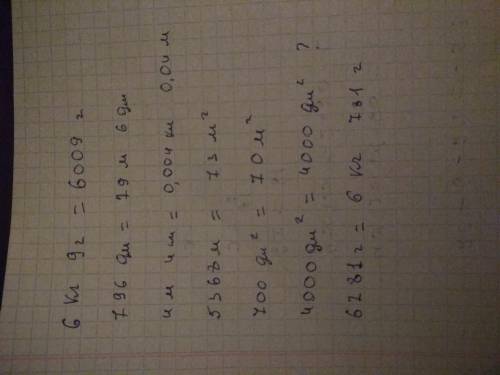 6 кг 9г = 6009 г
796 дм = 79 м 6 дм
4м 4м = 0,004 км 0,04 м
5368 м = 73 м²
700 дм² = 70 м²
4000 дм² = 4000 дм² ?
6281 г = 6 кг 731 г